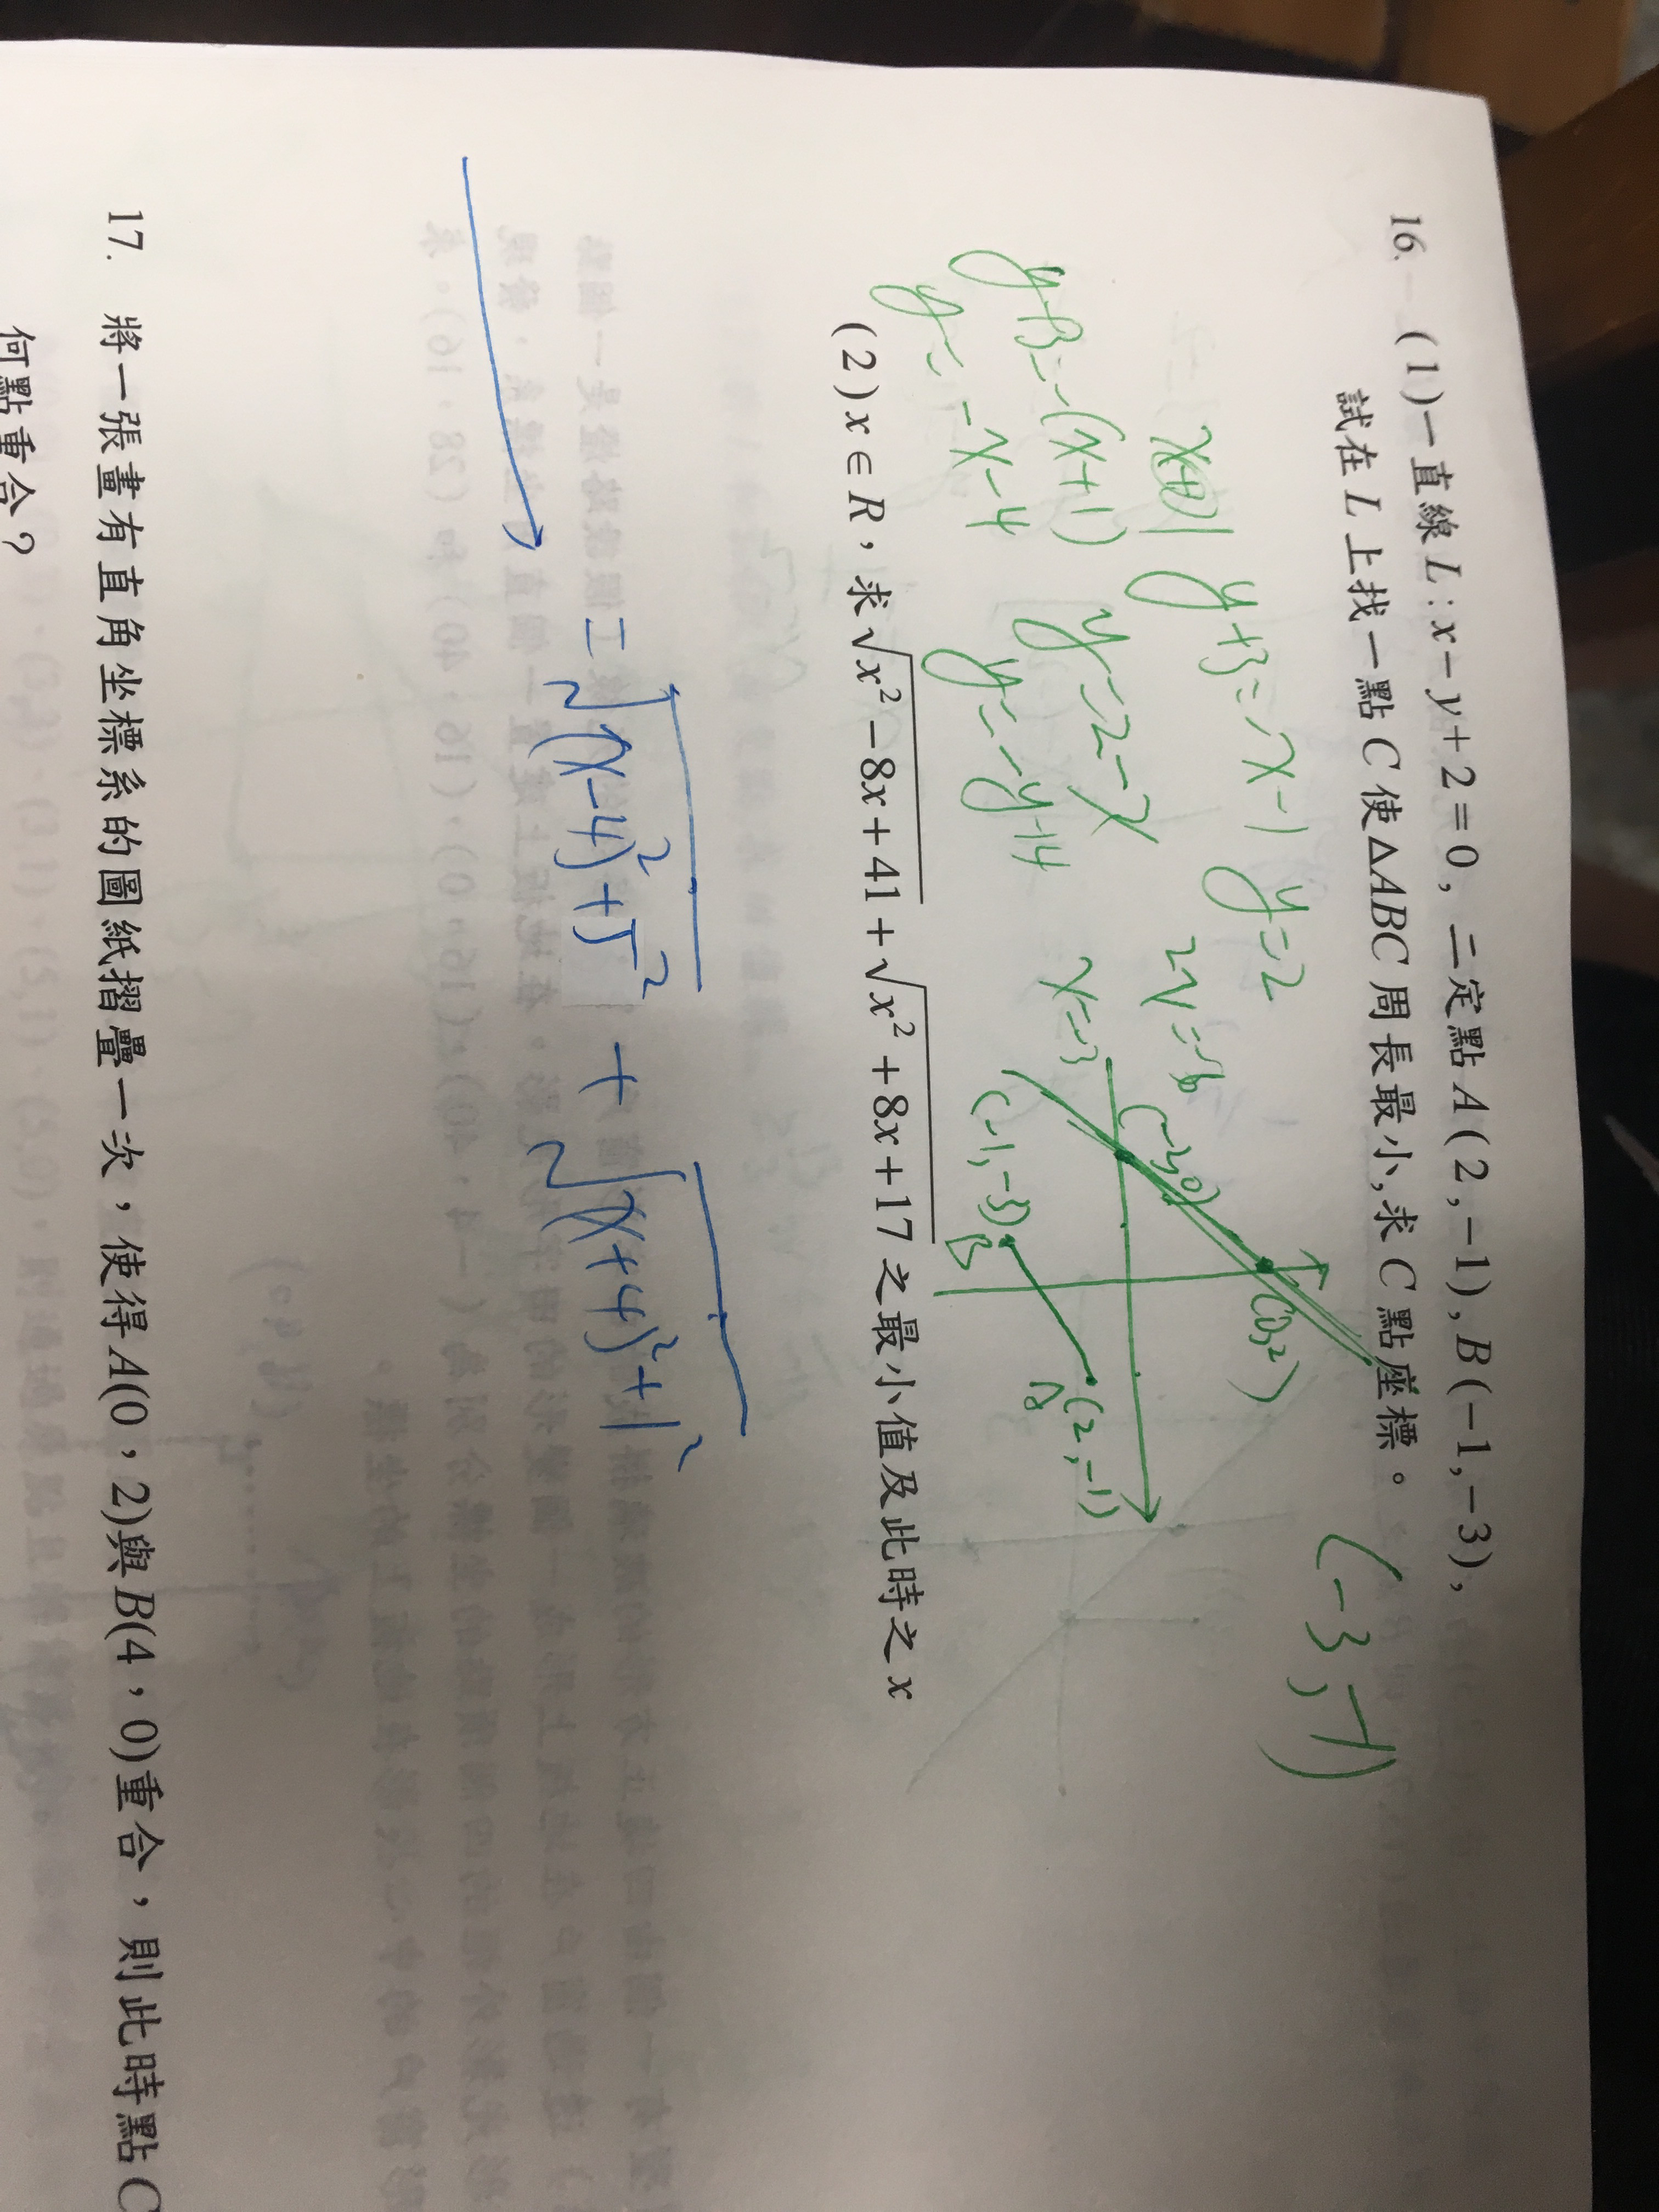 16. (1)一直線L:x-y+2=0,二定點A(2,-1),B(-1,-3),
試在L上找一點C使△ABC周長最小,求C點座標。
(-3,-1)
y+3=x-1
y=2
y+3=-(x+1)
y=2-x
2x=-6
y=-x-4
x=-3
(-3,0)
(0,2)
(-1,-3)
B
A
(2,-1)
(2)x∈R,求√x²-8x+41+√x²+8x+17之最小值及此時之x
=√(x-4)²+5²+√(x+4)²+1²
17. 將一張畫有直角坐標系的圖紙摺疊一次,使得A(0,2)與B(4,0)重合,則此時點C
何點重合?